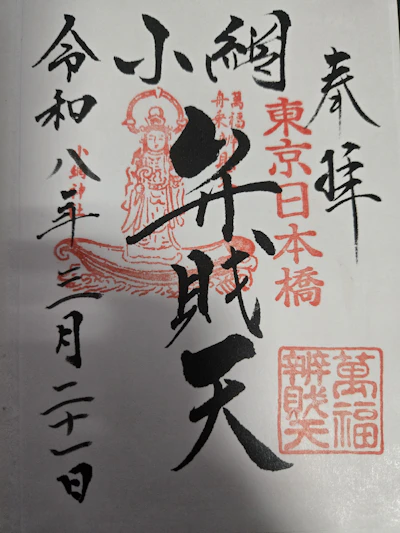 奉拝
東京日本橋
萬福
辨財天
小網
弁財天
萬福舟乗弁財天
小網神社
令和八年三月二十一日